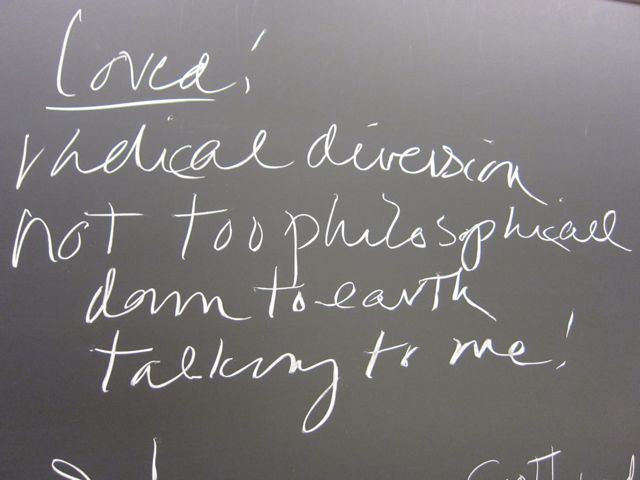 Loved!
radical diversion
not too philosophical
down to earth
talking to me!